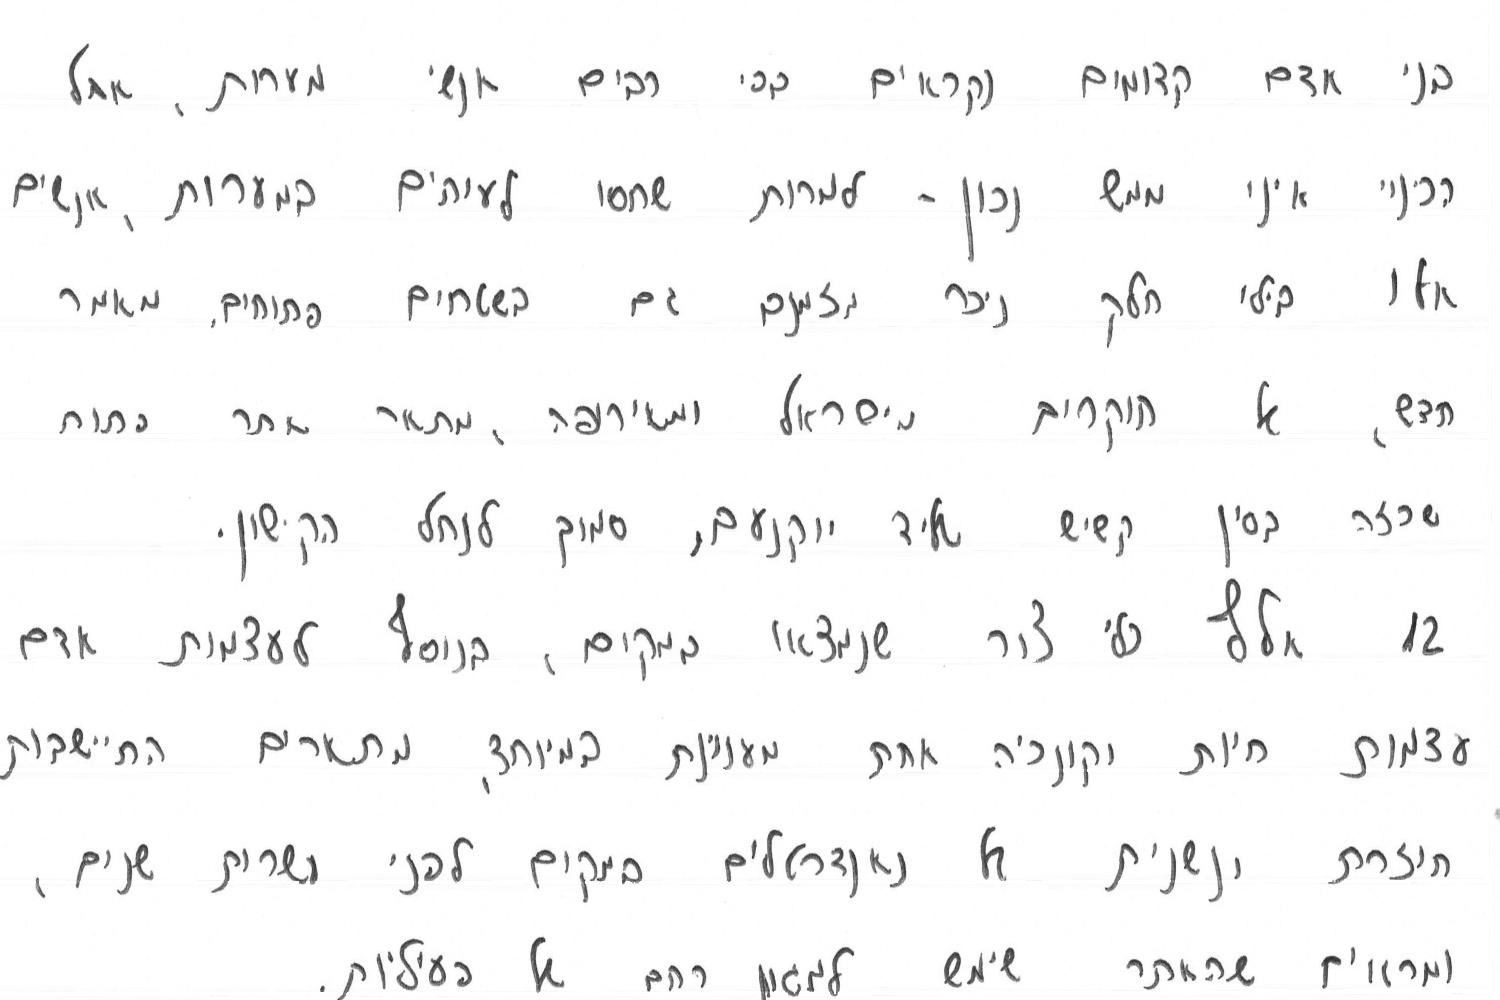 בני אדם קדומים נקראים בפי רבים אנשי מערות, אבל
הכינוי אינו ממש נכון - למרות שחסו לעיתים במערות, אנשים
אלו בילו חלק ניכר מזמנם גם בשטחים פתוחים. מאמר
חדש, של חוקרים מישראל ומאירופה, מתאר אתר פתוח
שכזה בעין קשיש שליד יוקנעם, סמוך לנחל הקישון.
12 אלף כלי צור שנמצאו במקום, בנוסף לעצמות אדם
עצמות חיות וקונכיה אחת מעניינת במיוחד, מתארים התיישבות
חוזרת ונשנית של נאנדרטלים במקום לפני עשרות שנים,
ומראים שהאתר שימש למגוון רחב של פעילויות.